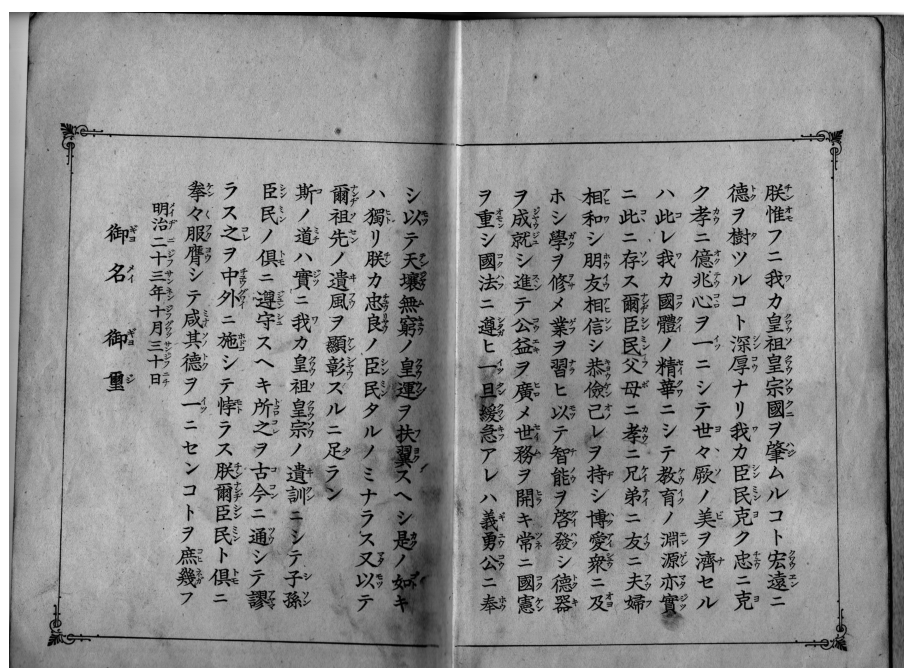 朕惟フニ我カ皇祖皇宗國ヲ肇ムルコト宏遠ニ
德ヲ樹ツルコト深厚ナリ我カ臣民克ク忠ニ克
ク孝ニ億兆心ヲ一ニシテ世々厥ノ美ヲ濟セル
ハ此レ我カ國體ノ精華ニシテ教育ノ淵源亦實
ニ此ニ存ス爾臣民父母ニ孝ニ兄弟ニ友ニ夫婦
相和シ朋友相信シ恭儉己レヲ持シ博愛衆ニ及
ホシ學ヲ修メ業ヲ習ヒ以テ智能ヲ啓發シ德器
ヲ成就シ進テ公益ヲ廣メ世務ヲ開キ常ニ國憲
ヲ重シ國法ニ遵ヒ一旦緩急アレハ義勇公ニ奉
シ以テ天壤無窮ノ皇運ヲ扶翼スヘシ是ノ如キ
ハ獨リ朕カ忠良ノ臣民タルノミナラス又以テ
爾祖先ノ遺風ヲ顯彰スルニ足ラン
斯ノ道ハ實ニ我カ皇祖皇宗ノ遺訓ニシテ子孫
臣民ノ俱ニ遵守スヘキ所之ヲ古今ニ通シテ謬
ラス之ヲ中外ニ施シテ悖ラス朕爾臣民ト俱ニ
拳々服膺シテ咸其德ヲ一ニセンコトヲ庶幾フ
明治二十三年十月三十日
御名御璽